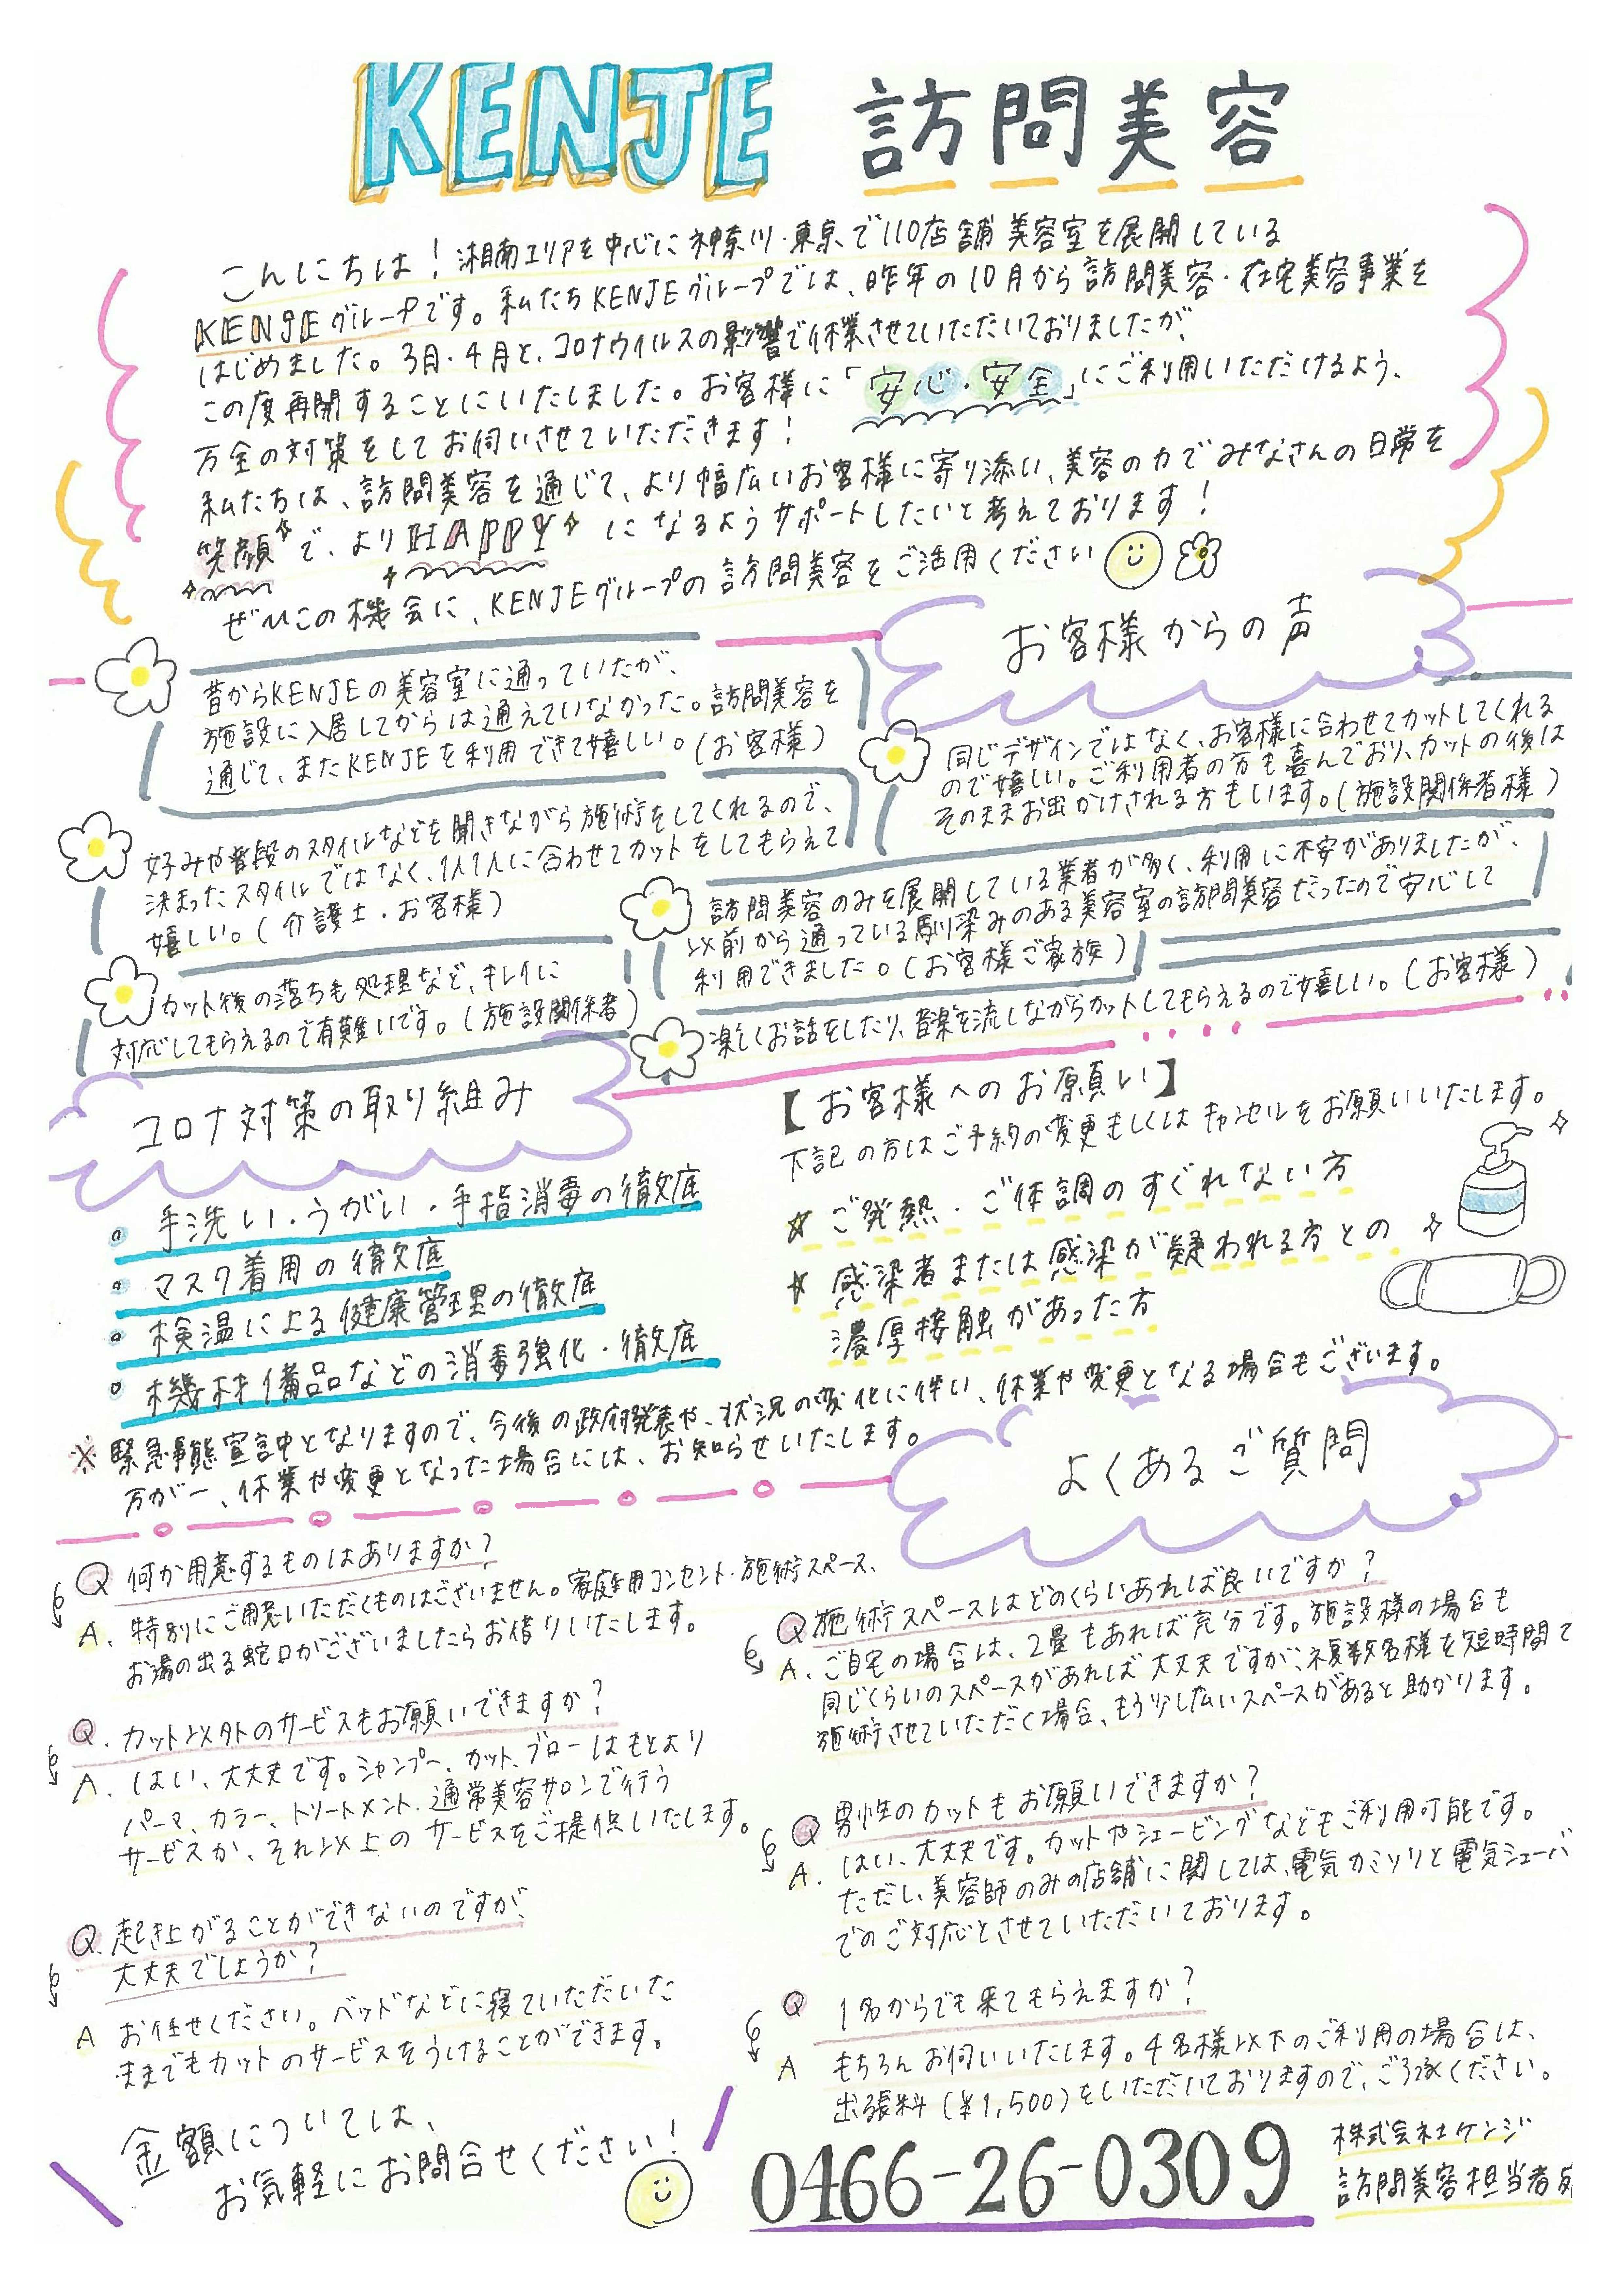 KENJE 訪問美容
こんにちは！湘南エリアを中心に神奈川・東京で110店舗美容室を展開している
KENJEグループです。私たちKENJEグループでは、昨年の10月から訪問美容・在宅美容事業を
はじめました。3月・4月と、コロナウイルスの影響で休業させていただいておりましたが、
この度再開することにいたしました。お客様に「安心・安全」にご利用いただけるよう、
万全の対策をしてお伺いさせていただきます！
私たちは、訪問美容を通じて、より幅広いお客様に寄り添い、美容の力でみなさんの日常を
笑顔で、よりHAPPYになるようサポートしたいと考えております！
ぜひこの機会に、KENJEグループの訪問美容をご活用ください
お客様からの声
昔からKENJEの美容室に通っていたが、
施設に入居してからは通えていなかった。訪問美容を
通じて、またKENJEを利用できて嬉しい。(お客様)
同じデザインではなく、お客様に合わせてカットしてくれる
ので嬉しい。ご利用者の方も喜んでおり、カットの後は
そのままお出かけされる方もいます。(施設関係者様)
好みや普段のスタイルなどを聞きながら施術をしてくれるので、
決まったスタイルではなく、1人1人に合わせてカットをしてもらえて
嬉しい。(介護士・お客様)
訪問美容のみを展開している業者が多く、利用に不安がありましたが、
以前から通っている馴染みのある美容室の訪問美容だったので安心して
利用できました。(お客様ご家族)
カット後の落ちも処理など、キレイに
対応してもらえるので有難いです。(施設関係者)
楽しくお話をしたり、音楽を流しながらカットしてもらえるので嬉しい。(お客様)
コロナ対策の取り組み
手洗い・うがい・手指消毒の徹底
マスク着用の徹底
検温による健康管理の徹底
機材備品などの消毒強化・徹底
【お客様へのお願い】
下記の方はご予約の変更もしくはキャンセルをお願いいたします。
☆ ご発熱・ご体調のすぐれない方
☆ 感染者または感染が疑われる方との
濃厚接触があった方
※ 緊急事態宣言中となりますので、今後の政府発表や、状況の変化に伴い、休業や変更となる場合もございます。
万が一、休業や変更となった場合には、お知らせいたします。
よくあるご質問
Q 何か用意するものはありますか？
A. 特別にご用意いただくものはございません。家庭用コンセント・施術スペース、
お湯の出る蛇口がございましたらお借りいたします。
Q. カット以外のサービスもお願いできますか？
A. はい、大丈夫です。シャンプー、カット、ブローはもとより
パーマ、カラー、トリートメント、通常美容サロンで行う
サービスか、それ以上のサービスをご提供いたします。
Q. 起き上がることができないのですが、
大丈夫でしょうか？
A お任せください。ベッドなどに寝ていただいた
ままでもカットのサービスをうけることができます。
Q 施術スペースはどのくらいあれば良いですか？
A. ご自宅の場合は、2畳もあれば充分です。施設様の場合も
同じくらいのスペースがあれば大丈夫ですが、複数名様を短時間で
施術させていただく場合、もう少し広いスペースがあると助かります。
Q 男性のカットもお願いできますか？
A. はい、大丈夫です。カットやシェービングなどもご利用可能です。
ただし、美容師のみの店舗に関しては、電気カミソリと電気シェーバ
でのご対応とさせていただいております。
Q 1名からでも来てもらえますか？
A もちろんお伺いいたします。4名様以下のご利用の場合は、
出張料(¥1,500)をいただいておりますので、ご了承ください。
金額については、
お気軽にお問合せください！
0466-26-0309
株式会社ケンジ
訪問美容担当者